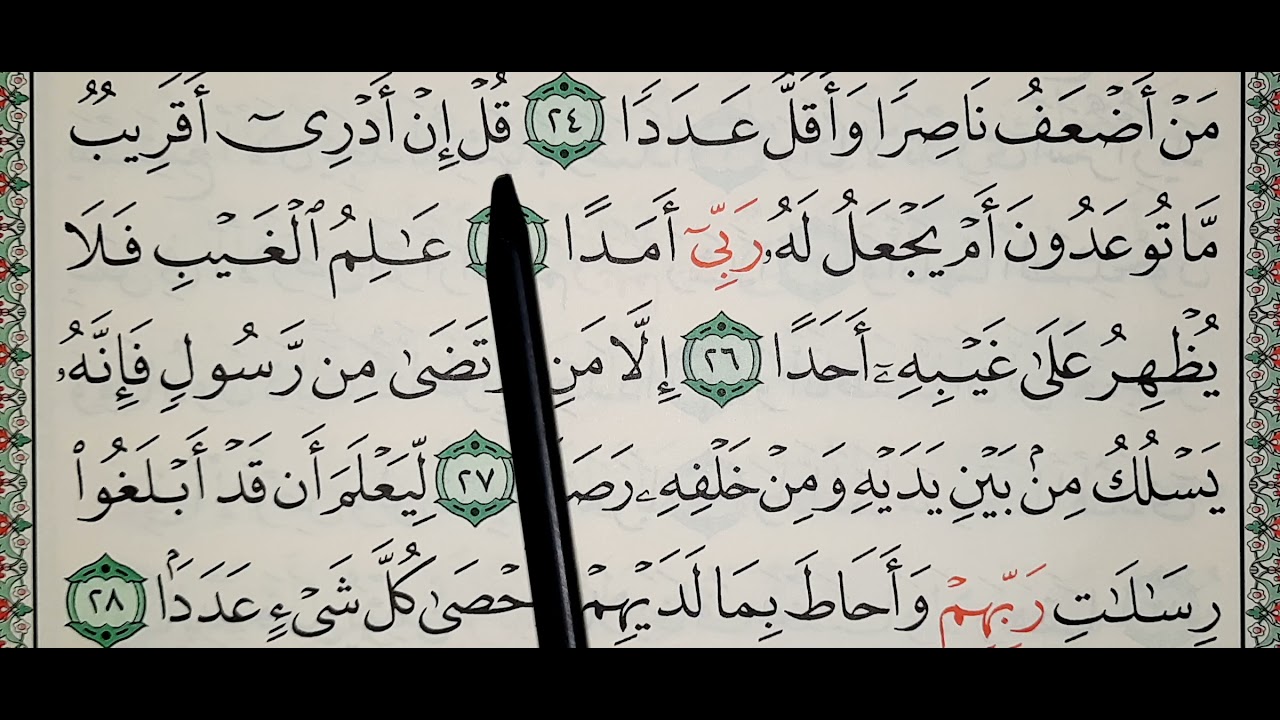 مَنۡ أَضۡعَفُ نَاصِرٗا وَأَقَلُّ عَدَدٗا ٢٤ قُلۡ إِنۡ أَدۡرِيٓ أَقَرِيبٞ
مَّا تُوعَدُونَ أَمۡ يَجۡعَلُ لَهُۥ رَبِّيٓ أَمَدًا عَٰلِمُ ٱلۡغَيۡبِ فَلَا
يُظۡهِرُ عَلَىٰ غَيۡبِهِۦٓ أَحَدًا ٢٦ إِلَّا مَنِ تَضَىٰ مِن رَّسُولٖ فَإِنَّهُۥ
يَسۡلُكُ مِنۢ بَيۡنِ يَدَيۡهِ وَمِنۡ خَلۡفِهِۦ رَصَ ٢٧ لِّيَعۡلَمَ أَن قَدۡ أَبۡلَغُواْ
رِسَٰلَٰتِ رَبِّهِمۡ وَأَحَاطَ بِمَا لَدَيۡهِمۡ حۡصَىٰ كُلَّ شَيۡءٍ عَدَدَۢا ٢٨